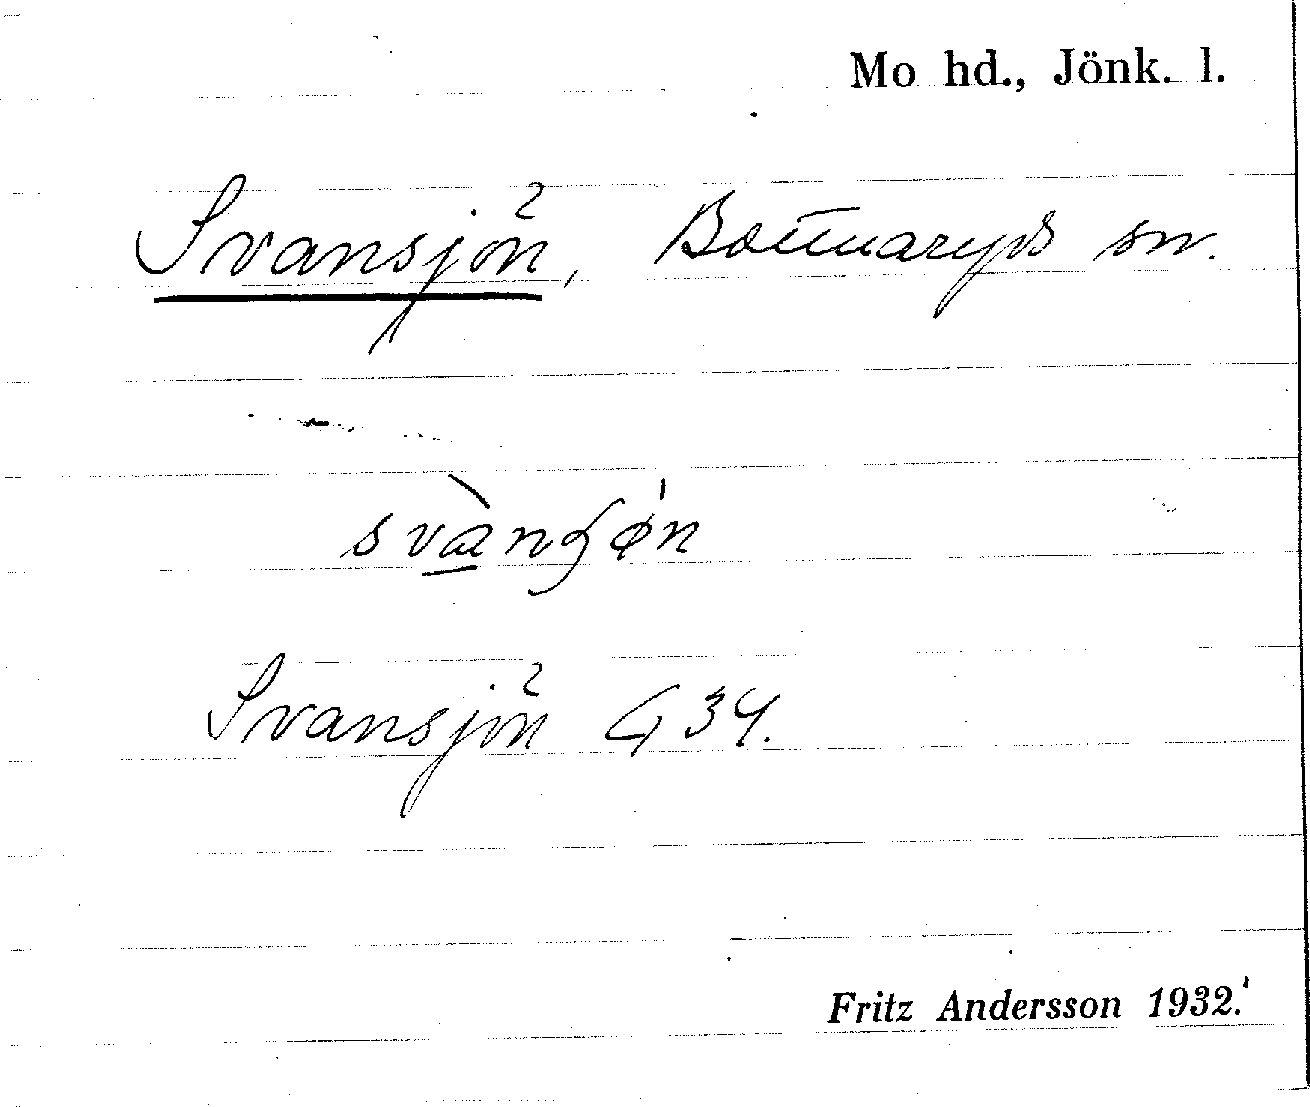 Mo hd., Jönk. l.
Svansjön, Bottnaryds sn.
Svansjön G 34.
Fritz Andersson 1932.